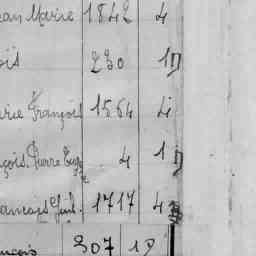 ean Marie 1842 4
ois 230 1D
arie François 1564 4
çois Pierre Eug 4 1D
rançois Guil. 1717 4
ançois 307 1D